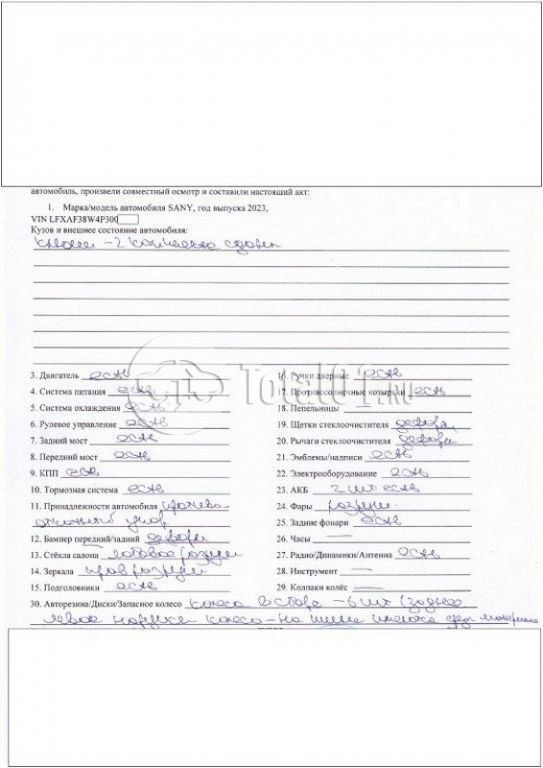 автомобиль, произвели совместный осмотр и составили настоящий акт:
1. Марка/модель автомобиля SANY, год выпуска 2023,
VIN LFXAF38W4P300
Кузов и внешнее состояние автомобиля:
- 2 сдоен
3. Двигатель есть
4. Система питания есть
5. Система охлаждения есть
6. Рулевое управление есть
7. Задний мост есть
8. Передний мост есть
9. КПП есть
10. Тормозная система есть
11. Принадлежности автомобиля
12. Бампер передний/задний дефори
13. Стёкла салона лобовое разруш
14. Зеркала прав разруш
15. Подголовники есть
16. Ручки дверные есть
17. Противосолнечные козырьки есть
18. Пепельницы —
19. Щетки стеклоочистителя
20. Рычаги стеклоочистителя
21. Эмблемы/надписи есть
22. Электрооборудование есть
23. АКБ 2 шт есть
24. Фары разруш.
25. Задние фонари есть
26. Часы —
27. Радио/Динамики/Антенна есть
28. Инструмент —
29. Колпаки колёс —
30. Авторезина/Диски/Запасное колесо колеса в сборе – 6 шт (заднее
левое наружнее колесо – на шине
Total01.ru